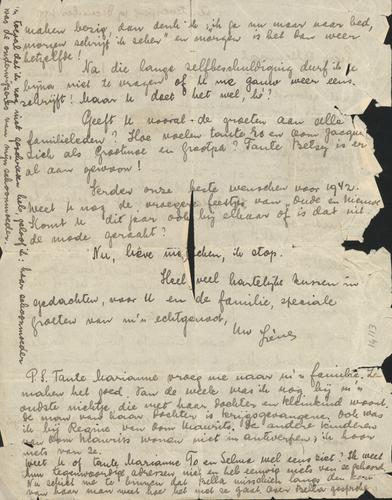 maken bezig, dan denk ik "ik ga nu maar naar bed,
morgen schrijf ik zeker" en morgen is het dan weer
hetzelfde!
Na die lange zelfbeschuldiging durf ik je
bijna niet te vragen of U me gauw weer eens
schrijft! Maar U doet het wel, hè?
Geeft U vooral de groeten aan alle
familieleden? Hoe voelen tante en oom Jacques
zich als Grootmoe en Grootpa? Tante Betsy is er
al aan gewoon!
Verder onze beste wenschen voor 1942.
Weet U nog de vroegere feestjes van "Oude en Nieuwe"
Komt U dit jaar ook bij elkaar of is dat uit
de mode geraakt?
Nu, lieve menschen, ik stop.
Heel veel hartelijke kussen in
gedachten, voor U en de familie, speciale
groeten van m'n echtgenoot,
Uw Irène
P.S. Tante Marianne vroeg me naar m'n familie, ze
maken het goed. Van de week was ik nog bij m'n
oudste nichtje die met haar dochter en kleinkind woont,
de man van haar dochter is krijgsgevangene. Ook was
ik bij Regine van oom Maurits. De andere kinderen
van oom Maurits wonen niet in Antwerpen, ik hoor
niets van ze.
Weet U of tante Marianne To en Selma wel eens ziet? Ik weet
hun tegenwoordige adressen niet en heb eenvoudig niets van ze gehoord.
van haar man weet hoe het met ze gaat.
was de onderwijzeres van mijn schoonmoeder.